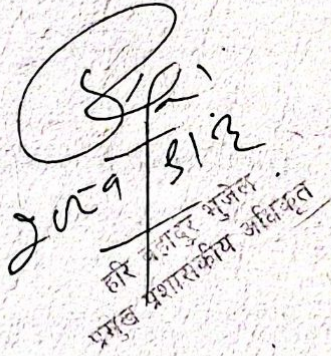 २०८१/३/२
हरि बहादुर भुजेल
प्रमुख प्रशासकीय अधिकृत